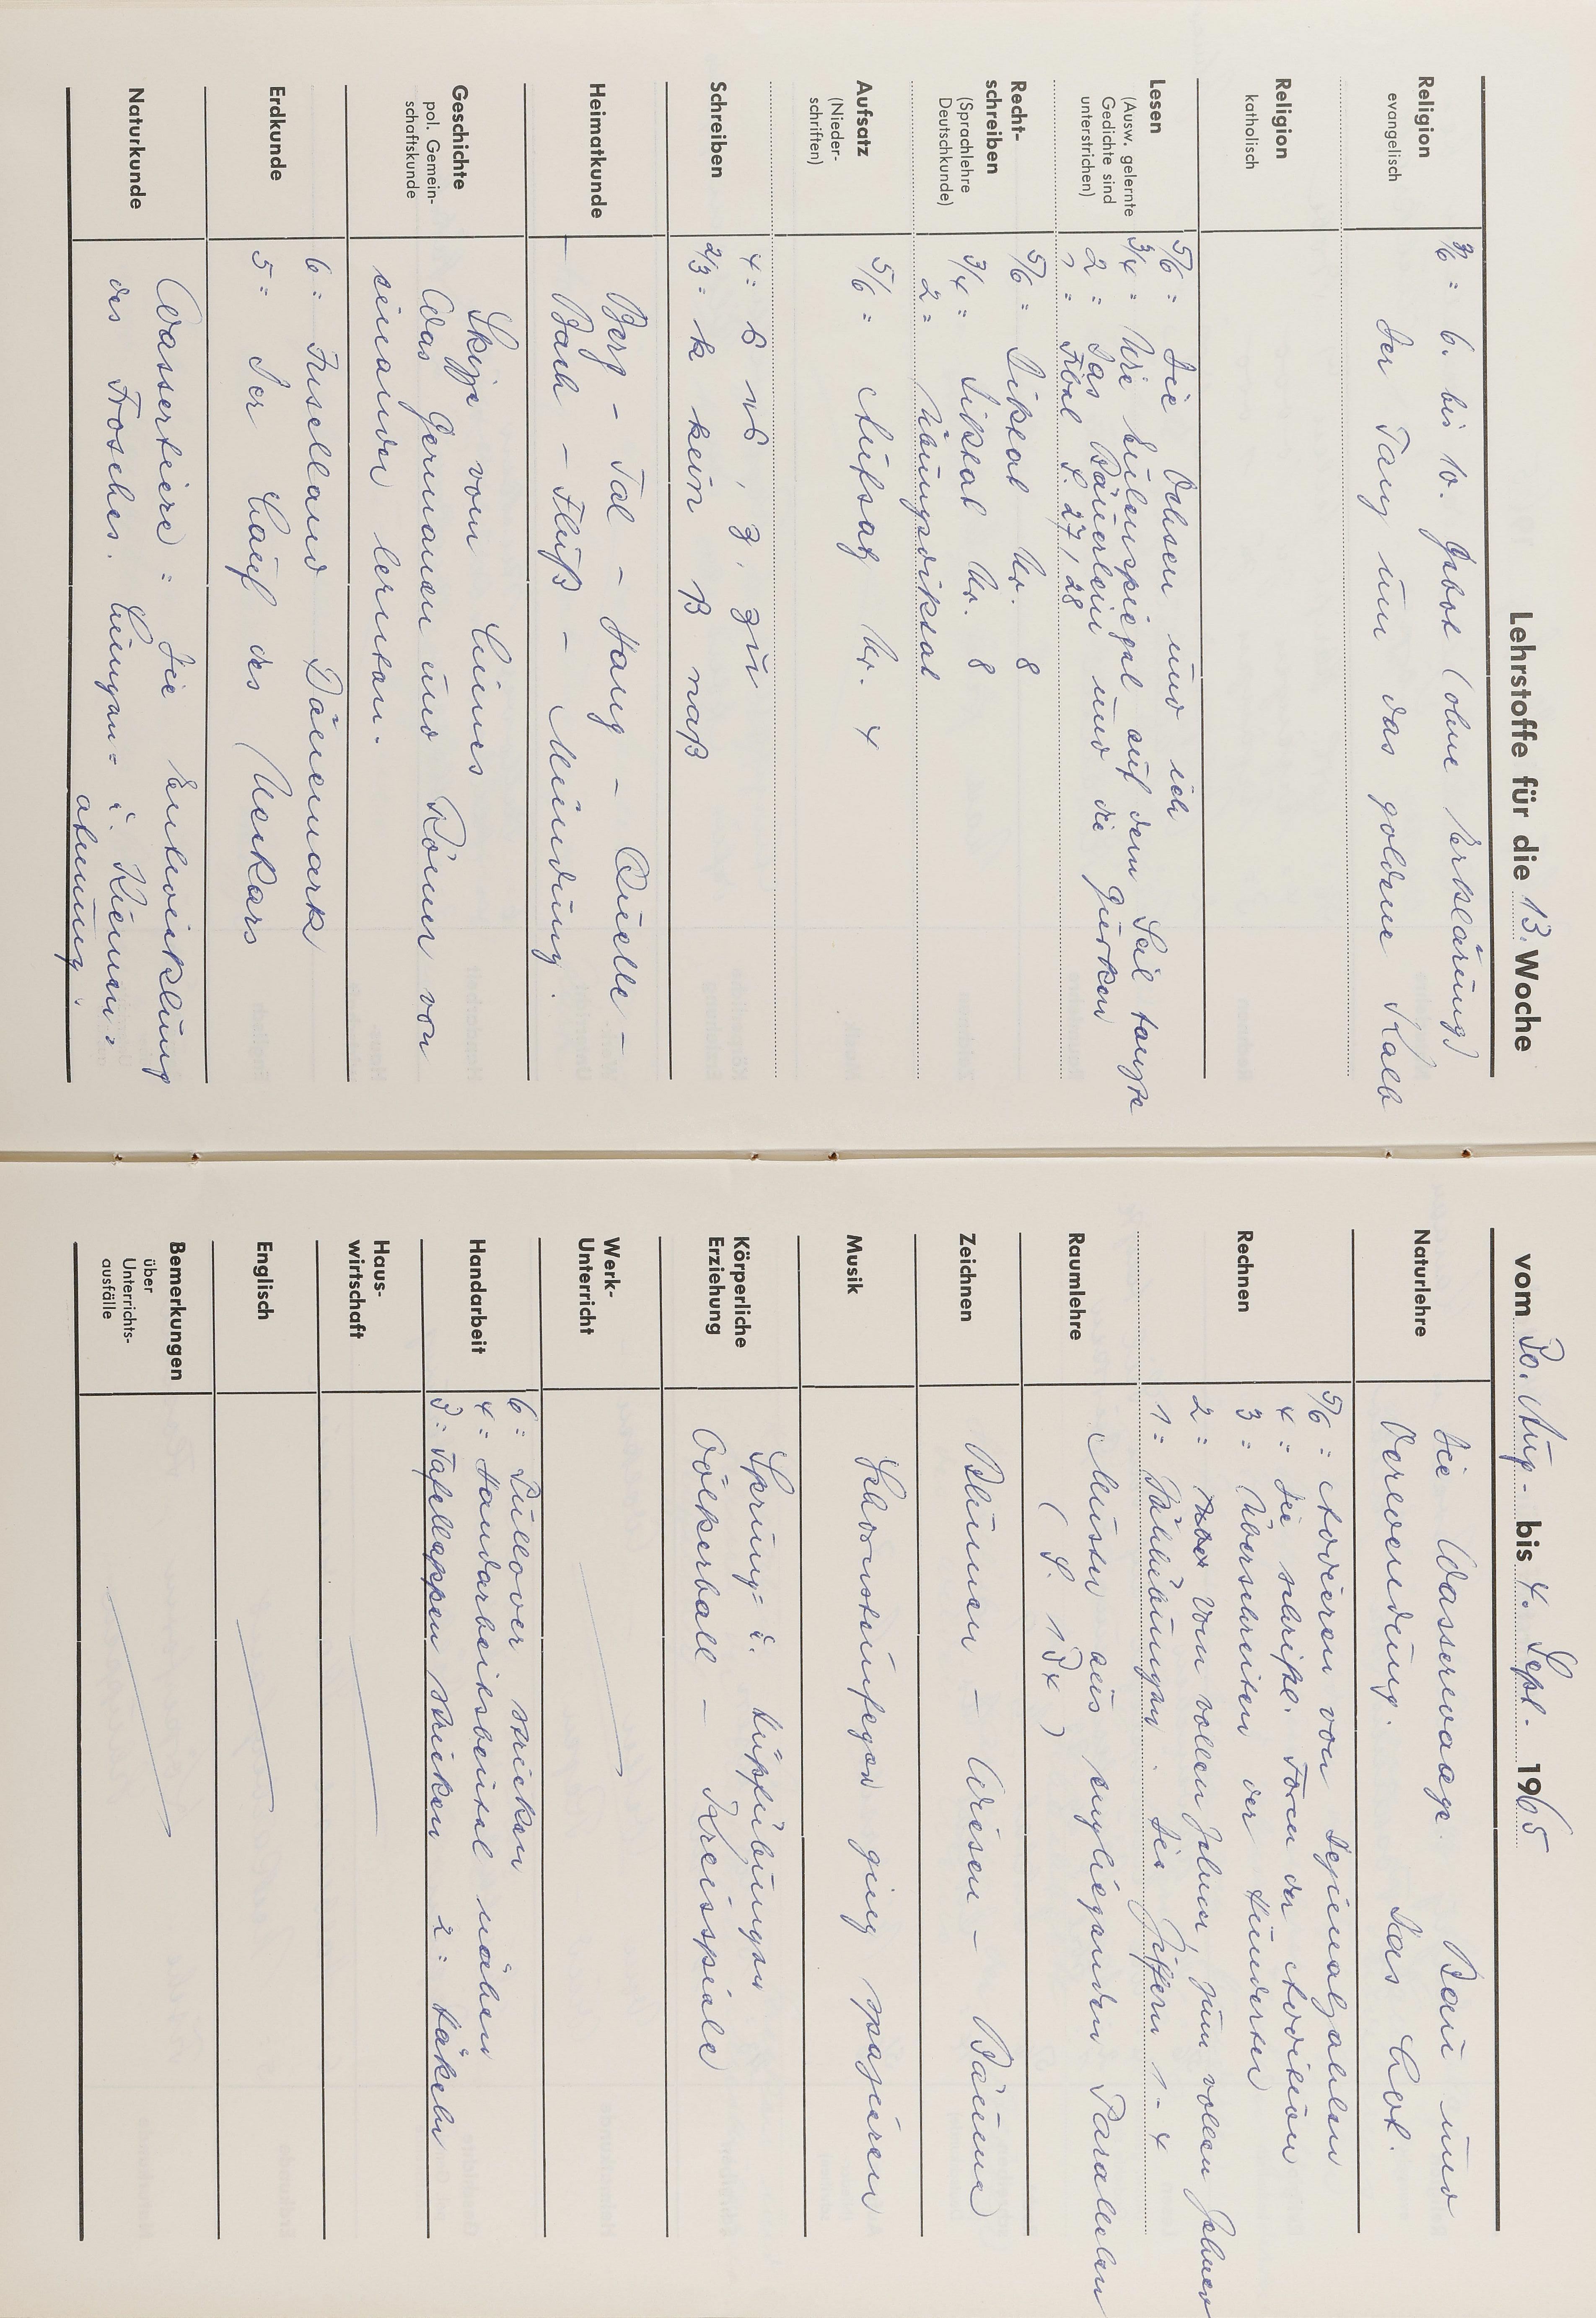 Lehrstoffe für die 13. Woche
Religion
evangelisch
3/6 = 6. bis 10. Gebot (ohne Erklärung)
Der Tanz um das goldene Kalb
Religion
katholisch
Lesen
(Ausw. gelernte
Gedichte sind
unterstrichen)
5/6 = Die Ochsen und ich
3/4 = Wie Eulenspiegel auf dem Seil tanzte
2 = Das Bäuerlein und die Gurken
1 = Fibel S. 27, 28
Recht-
schreiben
(Sprachlehre
Deutschkunde)
5/6 = Diktat Nr. 8
3/4 = Diktat Nr. 8
2 = Übungsdiktat
Aufsatz
(Nieder-
schriften)
5/6 = Aufsatz Nr. 4
Schreiben
4 = 
2/3 = k kein ß naß
Heimatkunde
Berg - Tal - Hang - Quelle -
Bach - Fluß - Mündung.
Geschichte
pol. Gemein-
schaftskunde
Skizze vom Limes
Was Germanen und Römer von
einander lernten.
Erdkunde
6 = Inselland Dänemark
5 = Der Lauf des Neckars
Naturkunde
Wassertiere: Die Entwicklung
des Frosches. Lungen= u. Kiemen=
atmung.
vom 30. Aug. bis 4. Sept. 1965
Naturlehre
Die Wasserwaage. Bau und
Verwendung. Das Lot.
Rechnen
5/6 = Addieren von Dezimalzahlen
4 = Die schriftl. Form der Addition
3 = Überschreiten der Hunderter
2 = Vom vollen Zehner zum vollen Zehner
1 = Zählübungen. Die Ziffern 1-4
Raumlehre
Muster aus engliegenden Parallelen
(S. 134)
Zeichnen
Blumen - Wiesen - Bäume
Musik
Schornsteinfeger ging spazieren
Körperliche
Erziehung
Sprung= u. Hüpfübungen
Völkerball - Kreisspiele
Werk-
Unterricht
Handarbeit
6 = Pullover stricken
4 = Handarbeitsbeutel nähen
3 = Tafellappen stricken 2 = häkeln
Haus-
wirtschaft
Englisch
Bemerkungen
über
Unterrichts-
ausfälle